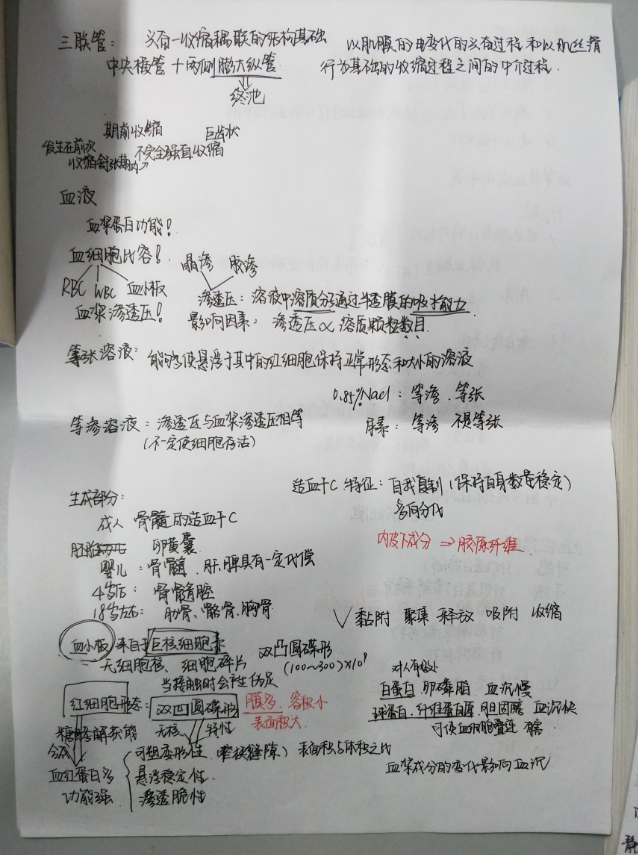 三联管：兴奋-收缩耦联的结构基础
中央横管+两侧膨大纵管
终池
以肌膜的电变化的兴奋过程和以肌丝滑
行为基础的收缩过程之间的中介过程.
期前收缩 巨齿状
发生在前次 不完全强直收缩
收缩舒张期内
血液
血浆蛋白功能！
血细胞比容！
RBC WBC 血小板
血浆渗透压！
晶渗 胶渗
渗透压：溶液中溶质分子通过半透膜的吸水能力
影响因素：渗透压∝溶质颗粒数目.
等张溶液：能够使悬浮于其中的红细胞保持正常形态和大小的溶液
0.85%Nacl：等渗、等张
等渗溶液：渗透压与血浆渗透压相等
(不一定使细胞存活)
尿素：等渗 不是等张
造血干C 特征：自我复制(保持自身数量稳定)
多向分化
生成部分：
成人 骨髓的造血干C
胚胎 卵黄囊
婴儿：骨髓，肝、脾具有一定代偿
4岁后：骨髓腔
18岁左右：肋骨、髂骨、胸骨
内皮下成分⇒胶原纤维
√黏附 聚集 释放 吸附 收缩
血小板 来自于巨核细胞
无细胞核、细胞碎片 双凸圆碟形
(100~300)×10⁹
当接触时会产生伪足
红细胞形态：双凹圆碟形
膜多，容积小
表面积大
糖酵解获能 无核 特性
合成
血红蛋白多
功能强
可塑变形性 表面积与体积之比
悬浮稳定性
渗透脆性
白蛋白 卵磷脂 血沉慢
球蛋白、纤维蛋白原 胆固醇 血沉快
可使血细胞叠连
血浆成分的变化影响血沉